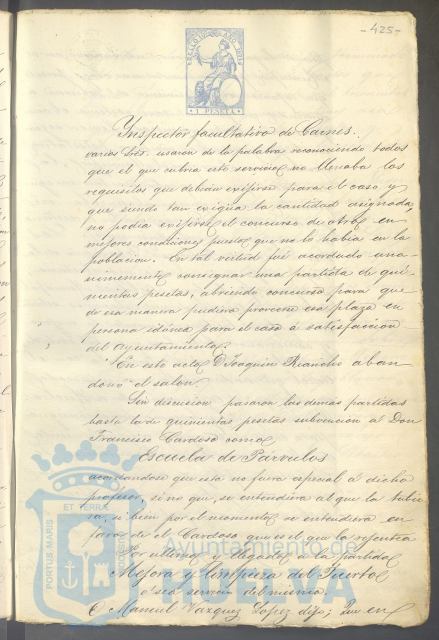 -425-
1 PESETA
Inspector facultativo de Carnes.
varios Sres. usaron de la palabra reconociendo todos
que el que cubria este servicio no llenaba los
requisitos que debian exijirse para el caso y
que siendo tan exigua la cantidad asignada,
no podia exijirse el concurso de otros en
mejores condiciones puesto que no lo habia en la
poblacion. En tal virtud fué acordado una-
nimemente consignar una partida de qui-
nientas pesetas, abriendo concurso para que
de esa manera pudiera proveerse esa plaza en
persona idónea para el caso á satisfaccion
del Ayuntamiento.
En este acto D Joaquin Riancho aban
donó el salon
Sin discusion pasaron las demas partidas
hasta la de quinientas pesetas subvencion á Don
Francisco Cardoso como
Escuela de Parvulos
acordandose que esta no fuera especial á dicho
profesor, si no que, se entendiera al que la tubie
ra, si bien por el momento se entendiera en
favor de el Cardoso que es el que la regentea
Por ultimo llegados á la partida
Mejora y limpieza del Puerto
ó sea servicio del mismo.
D Manuel Vazquez Lopez dijo; Que en
PORTUS MARIS
ET TERRÆ
Ayuntamiento de
HUELVA